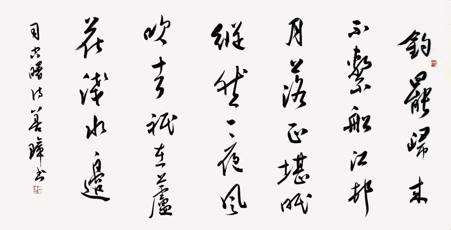 钓罢归来
不系船江村
月落正堪眠
纵然一夜风
吹去祇在芦
花浅水边
司空曙诗善璋书